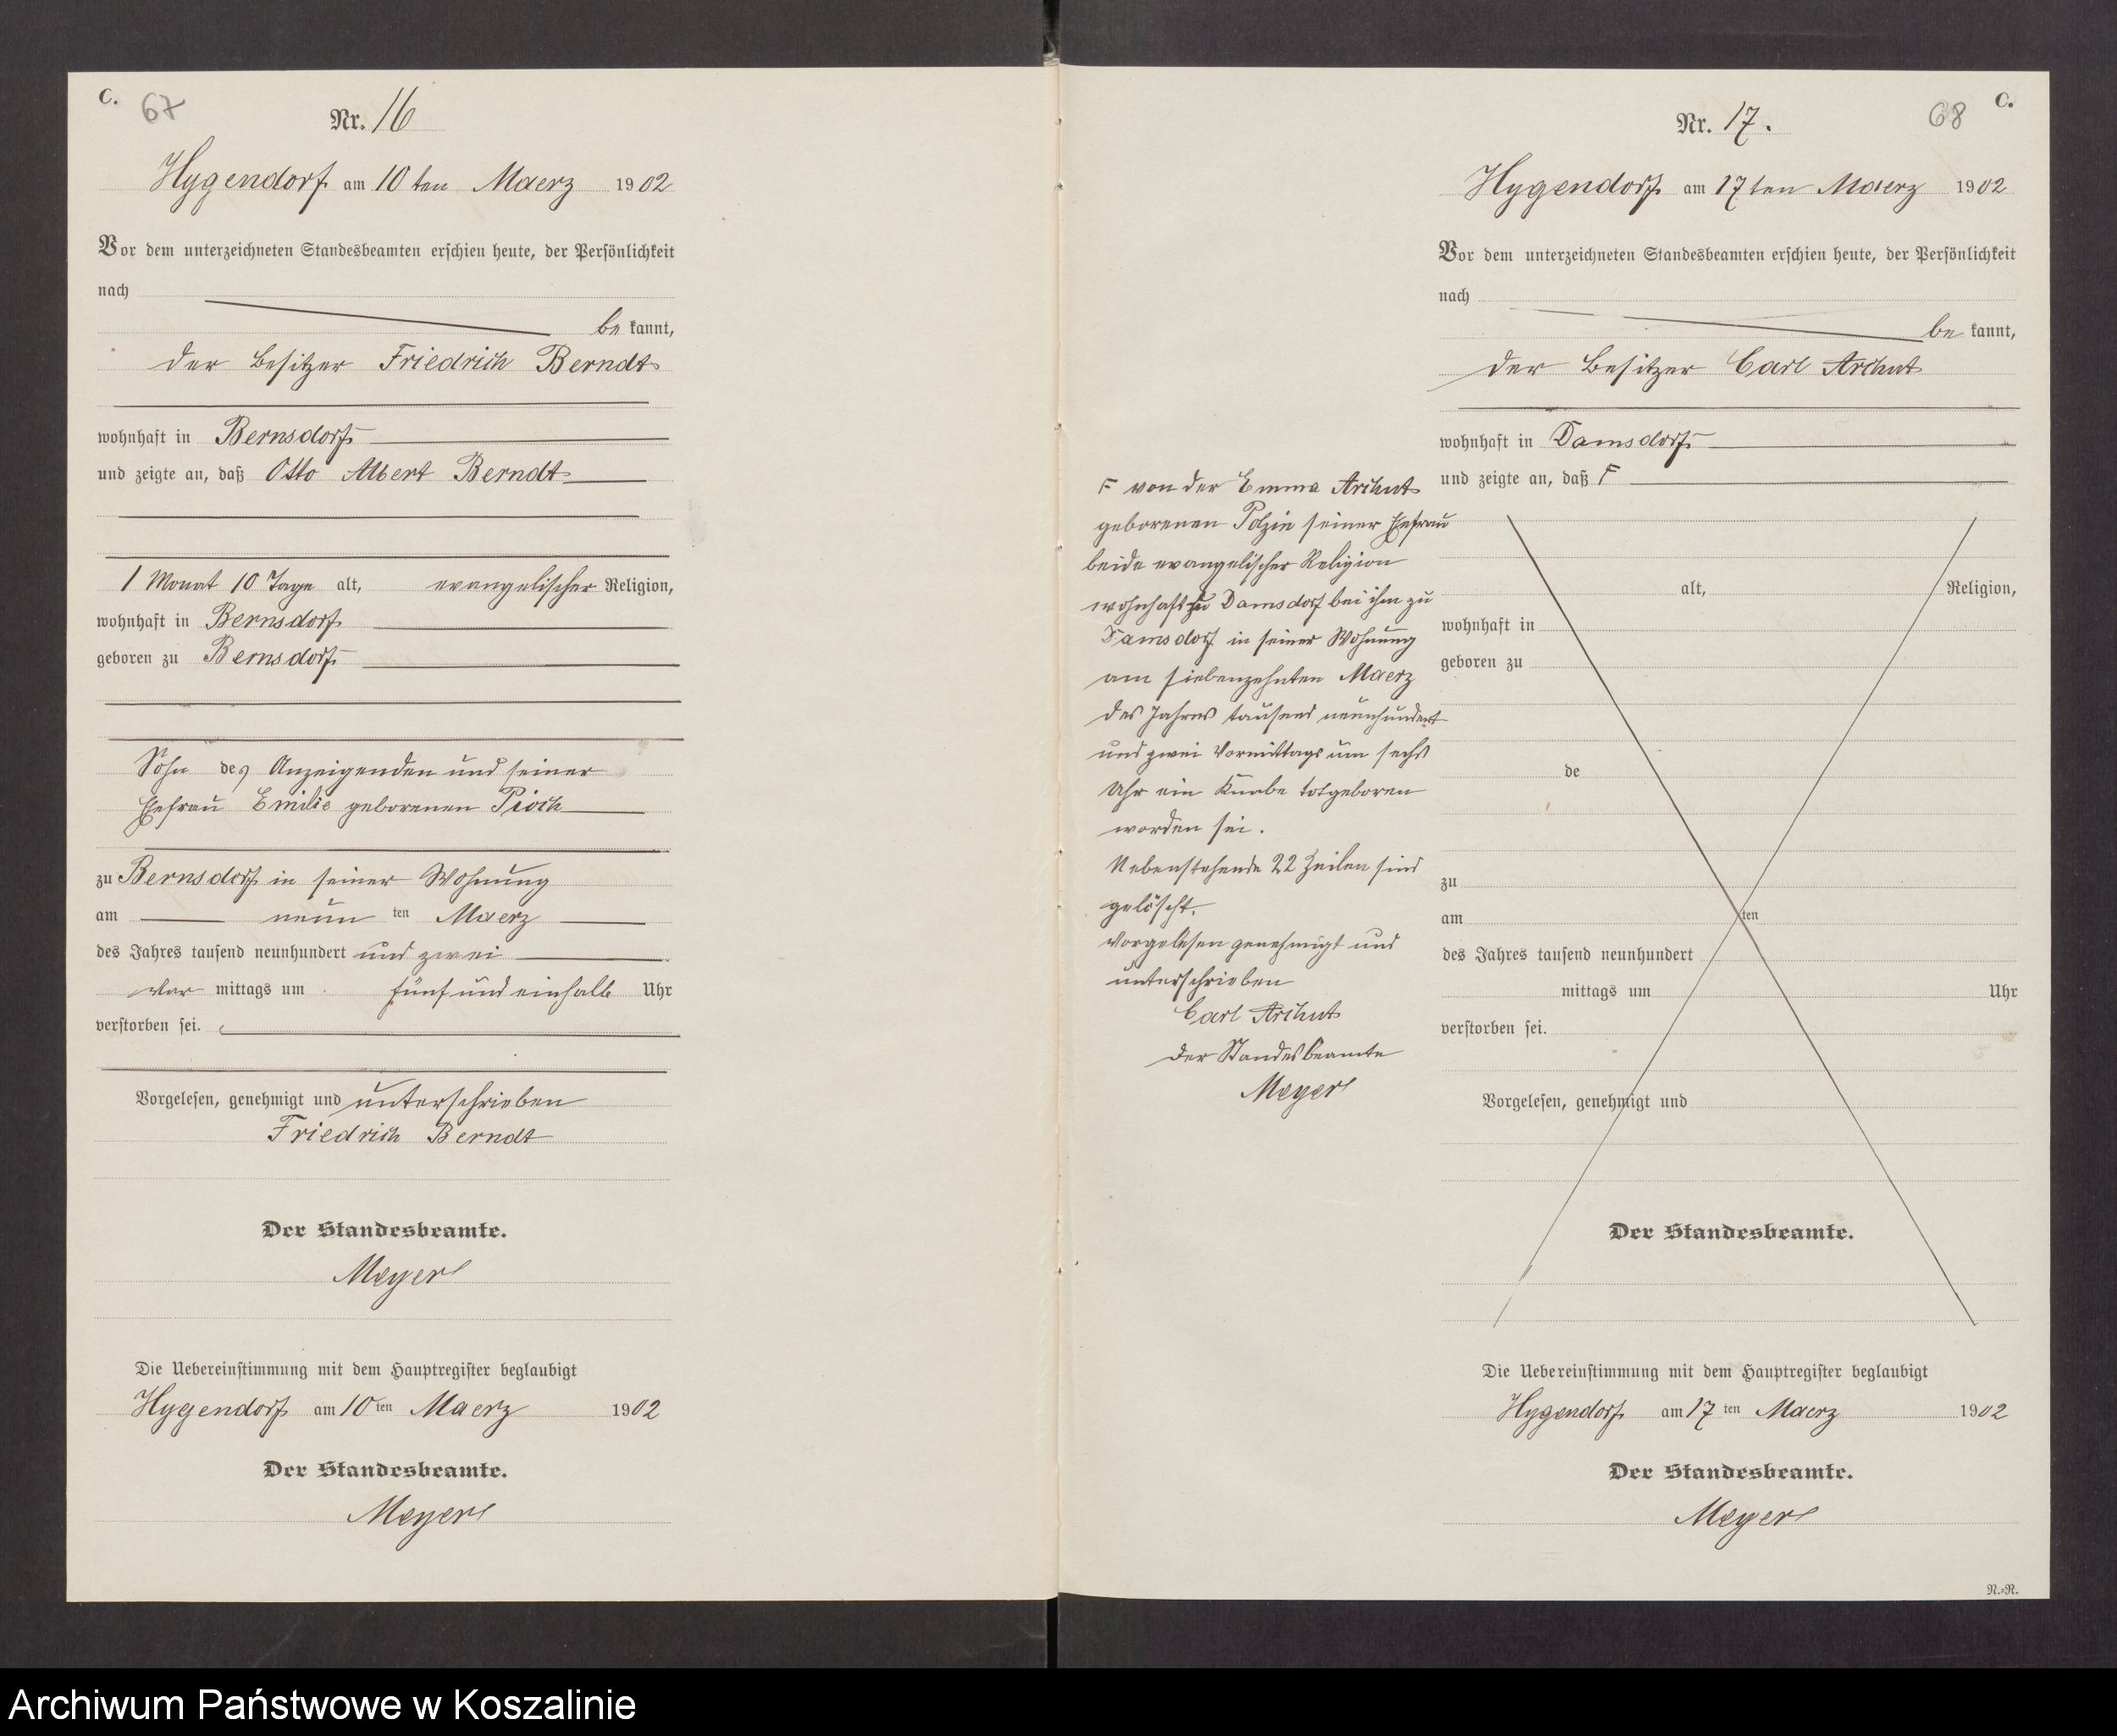 C.
67
Nr. 16
Hygendorf am 10 ten Maerz 1902
Vor dem unterzeichneten Standesbeamten erschien heute, der Persönlichkeit
nach
be kannt,
der Besitzer Friedrich Berndt
wohnhaft in Bernsdorf
und zeigte an, daß Otto Albert Berndt
1 Monat 10 Tage alt, evangelischer Religion,
wohnhaft in Bernsdorf
geboren zu Bernsdorf
Sohn des Anzeigenden und seiner
Ehefrau Emilie geborenen Pioch
zu Bernsdorf in seiner Wohnung
am neun ten Maerz
des Jahres tausend neunhundert und zwei
Vor mittags um fünf und einhalb Uhr
verstorben sei.
Vorgelesen, genehmigt und unterschrieben
Friedrich Berndt
Der Standesbeamte.
Meyer
Die Uebereinstimmung mit dem Hauptregister beglaubigt
Hygendorf am 10 ten Maerz 1902
Der Standesbeamte.
Meyer
C.
68
Nr. 17.
Hygendorf am 17 ten Maerz 1902
Vor dem unterzeichneten Standesbeamten erschien heute, der Persönlichkeit
nach
be kannt,
der Besitzer Carl Archut
wohnhaft in Damsdorf
und zeigte an, daß F
F von der Emma Archut
geborenen Polzin seiner Ehefrau
beide evangelischer Religion
wohnhaft zu Damsdorf bei ihm zu
Damsdorf in seiner Wohnung
am siebenzehnten Maerz
des Jahres tausend neunhundert
und zwei Vormittags um sechs
Uhr ein Knabe totgeboren
worden sei.
Nebenstehende 22 Zeilen sind
gelöscht.
Vorgelesen genehmigt und
unterschrieben
Carl Archut
Der Standesbeamte
Meyer
alt, Religion,
wohnhaft in
geboren zu
de
zu
am ten
des Jahres tausend neunhundert
mittags um Uhr
verstorben sei.
Vorgelesen, genehmigt und
Der Standesbeamte.
Die Uebereinstimmung mit dem Hauptregister beglaubigt
Hygendorf am 17 ten Maerz 1902
Der Standesbeamte.
Meyer
N.=N.
Archiwum Państwowe w Koszalinie